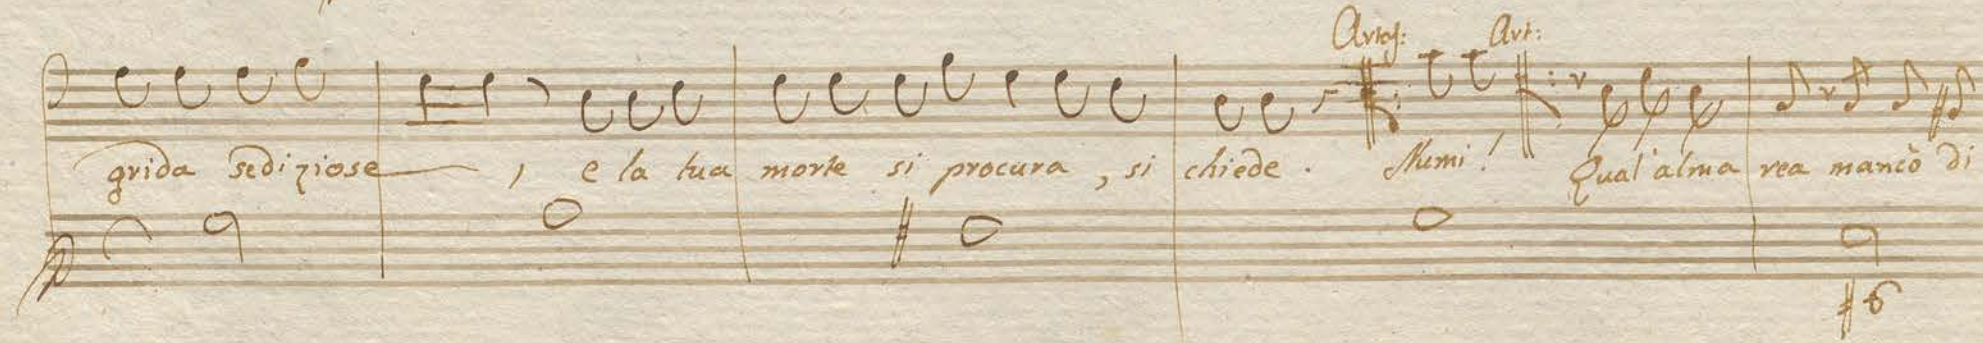 Artas: Art:
grida sediziose, e la tua morte si procura, si chiede. Numi! Qual'alma rea mancò di
#6